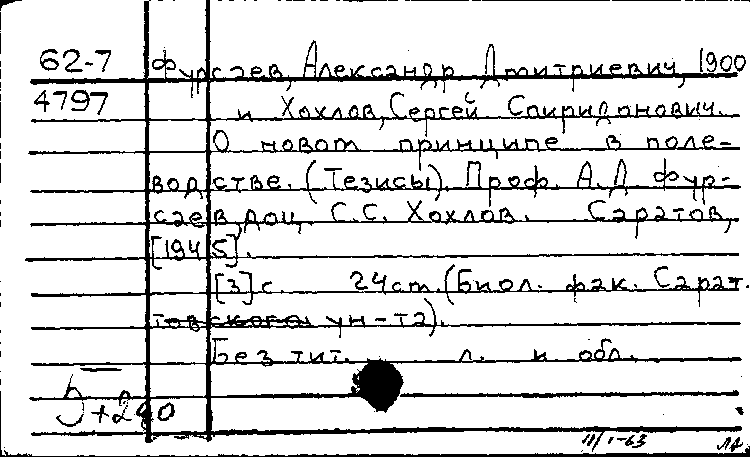 62-7 Фурсаев, Александр Дмитриевич, 1900
4797 и Хохлов, Сергей Спиридонович.
О новом принципе в поле-
водстве. (Тезисы). Проф. А.Д. Фур-
саев, доц. С.С. Хохлов. Саратов,
[1945].
[3] с. 24 cm. (Биол. фак. Сарат.
товского ун-та).
Без тит. л. и обл.
5+280
11/I-63 ЛА.